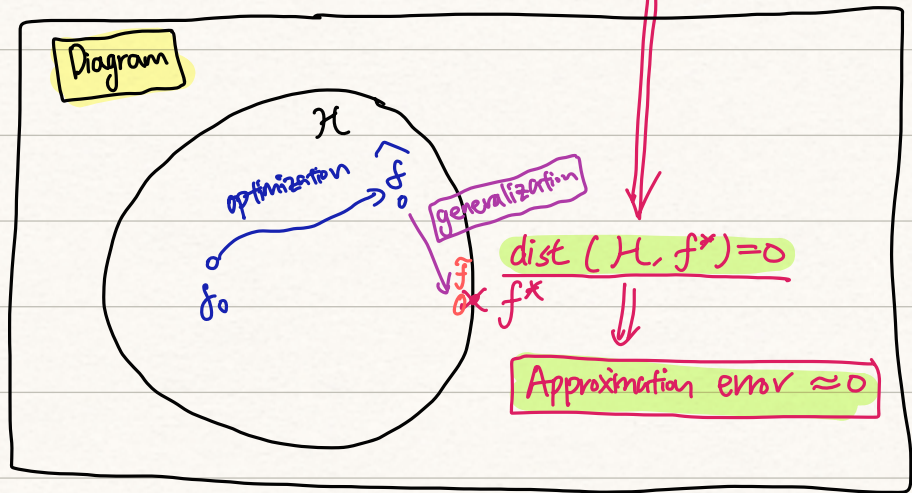 Diagram
H
optimization
f̂
generalization
f₀
f̃
f*
dist (H, f*)=0
Approximation error ≈ 0